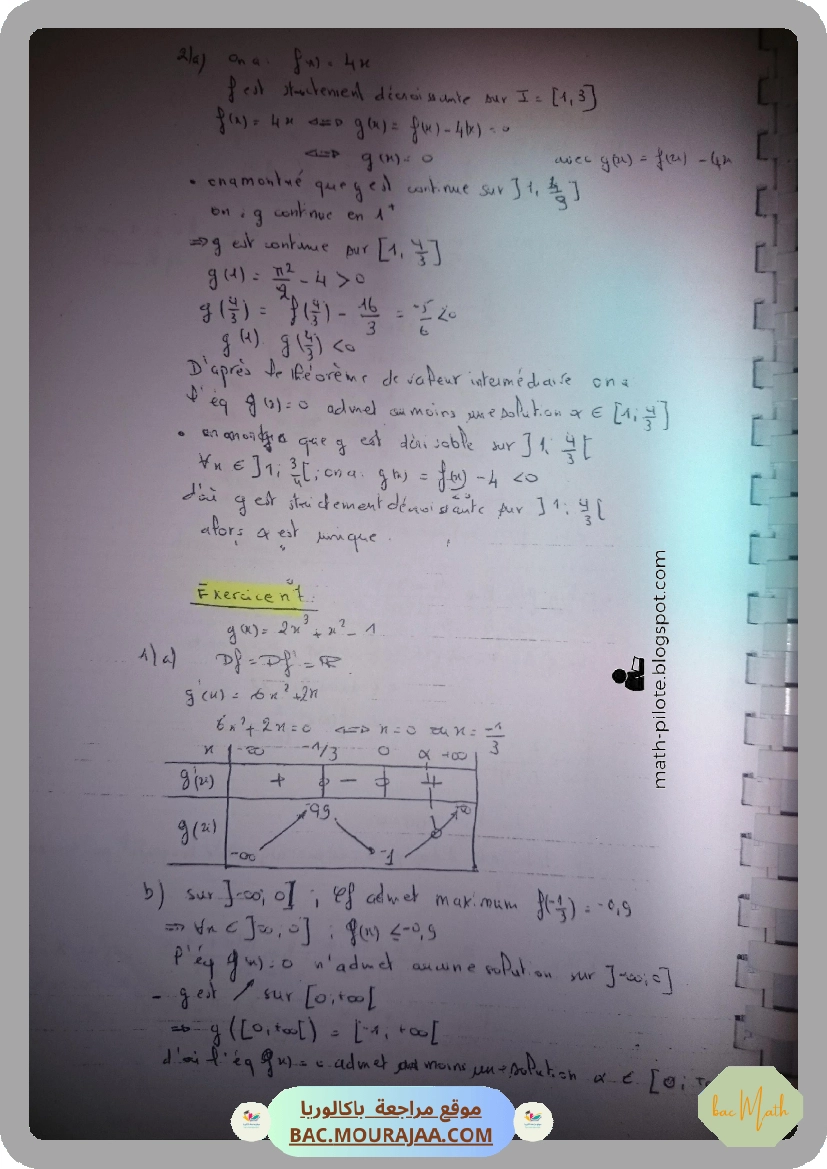 2/a) on a: f(x) = 4x
f est strictement décroissante sur I = [1, 3]
f(x) = 4x <=> g(x) = f(x) - 4(x) = 0
<=> g(x) = 0 avec g(x) = f(x) - 4x
• on a montré que g est continue sur ]1, 4/3]
on . g continue en 1⁺
=> g est continue sur [1, 4/3]
g(1) = π²/2 - 4 > 0
g(4/3) = f(4/3) - 16/3 = -5/6 < 0
g(1). g(4/3) < 0
D'après le théorème de valeur intermédiaire on a
l'éq g(x) = 0 admet au moins une solution α ∈ [1; 4/3]
• on a montré que g est dérivable sur ]1; 4/3[
∀x ∈ ]1; 3/4[; on a: g(x) = f(x) - 4 < 0
< 0
d'où g est strictement décroissante sur ]1; 4/3[
alors α est unique.
Exercice n°1:
g(x) = 2x³ + x² - 1
1/a) Df = Df' = ℝ
g'(x) = 6x² + 2x
6x² + 2x = 0 <=> x = 0 ou x = -1/3
x -∞ -1/3 0 α +∞
g'(x) + 0 - 0 +
g(x) -∞ -0,9 -1 0 +∞
b) sur ]-∞; 0] ; Cf admet maximum f(-1/3) = -0,9
=> ∀x ∈ ]∞, 0] ; f(x) ≤ -0,9
l'éq g(x) = 0 n'admet aucune solution sur ]-∞; 0]
- g est ↗ sur [0, +∞[
=> g([0, +∞[) = [-1, +∞[
d'où l'éq g(x) = 0 admet au moins une solution α ∈ [0; +
math-pilote.blogspot.com
موقع مراجعة باكالوريا
BAC.MOURAJAA.COM
bac Math